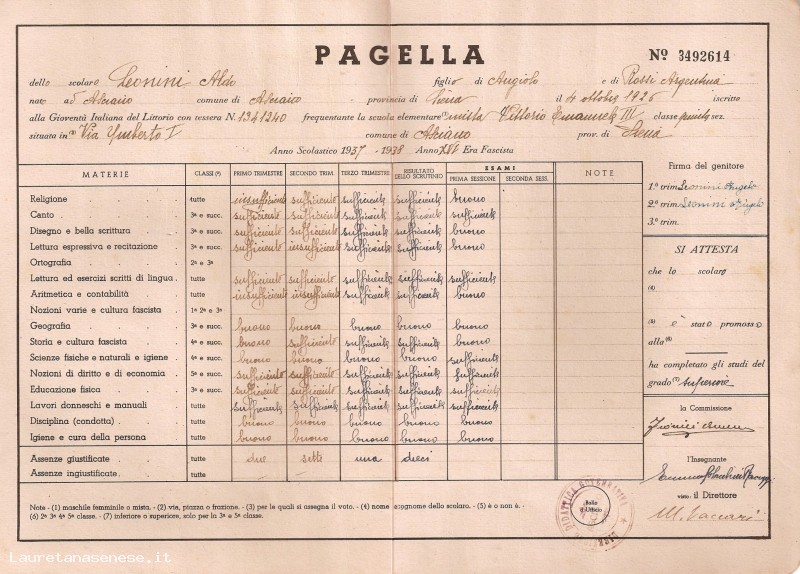 PAGELLA
No 3492614
dello scolaro Leonini Aldo figlio di Angiolo e di Rossi Argentina
nato ad Asciano comune di Asciano provincia di Siena il 4 ottobre 1926 iscritto
alla Gioventù Italiana del Littorio con tessera N. 1241240 frequentante la scuola elementare (1) mista Vittorio Emanuele III classe quinta sez.
situata in (2) Via Umberto I comune di Asciano prov. di Siena
Anno Scolastico 1937 - 1938 Anno XVI Era Fascista
MATERIE CLASSI (3) PRIMO TRIMESTRE SECONDO TRIM. TERZO TRIMESTRE RISULTATO DELLO SCRUTINIO ESAMI PRIMA SESSIONE SECONDA SESS. NOTE
Religione tutte insufficiente sufficiente sufficiente sufficiente buono
Canto 3ª e succ. sufficiente sufficiente sufficiente sufficiente sufficiente
Disegno e bella scrittura 3ª e succ. sufficiente sufficiente sufficiente sufficiente buono
Lettura espressiva e recitazione 3ª e succ. sufficiente insufficiente sufficiente sufficiente buono
Ortografia 2ª e 3ª
Lettura ed esercizi scritti di lingua tutte sufficiente sufficiente sufficiente sufficiente sufficiente
Aritmetica e contabilità tutte insufficiente insufficiente sufficiente sufficiente buono
Nozioni varie e cultura fascista 1ª 2ª e 3ª
Geografia 3ª e succ. buono buono buono buono buono
Storia e cultura fascista 4ª e succ. buono sufficiente sufficiente sufficiente buono
Scienze fisiche e naturali e igiene 4ª e succ. buono buono buono buono sufficiente
Nozioni di diritto e di economia 5ª e succ. sufficiente sufficiente sufficiente sufficiente sufficiente
Educazione fisica 3ª e succ. sufficiente sufficiente sufficiente sufficiente sufficiente
Lavori donneschi e manuali tutte sufficiente sufficiente sufficiente sufficiente sufficiente
Disciplina (condotta) tutte buono buono buono buono buono
Igiene e cura della persona tutte buono buono buono buono buono
Assenze giustificate tutte due sette una dieci
Assenze ingiustificate tutte
Firma del genitore
1.º trim. Leonini Angelo
2.º trim. Leonini Angelo
3.º trim.
SI ATTESTA
che lo scolaro
(4)
(5) è stato promosso
alla (6)
ha completato gli studi del
grado (7) superiore
la Commissione
l'Insegnante
visto: il Direttore
M. Vaccari
Note - (1) maschile femminile o mista - (2) via, piazza o frazione. - (3) per le quali si assegna il voto. - (4) nome cognome dello scolaro. - (5) è o non è.
(6) 2ª 3ª 4ª 5ª classe. - (7) inferiore o superiore, solo per la 3ª e 5ª classe.
Bollo d'Ufficio
Lauretanasenese.it